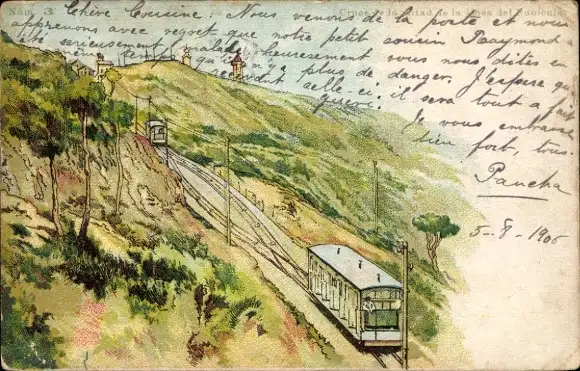 Núm. 3 Cruce de la mitad de la línea del Funicular
Chère Cousine: Nous venons de la poste et nous
apprenons avec regret que notre petit cousin Raymond a
été serieusement malade heureusement vous nous dites en
plus de danger. J'espère que
celle-ci, il sera tout a fait
gueri. Je vous embrasse
bien fort, tous.
Pancha
5-8-1906